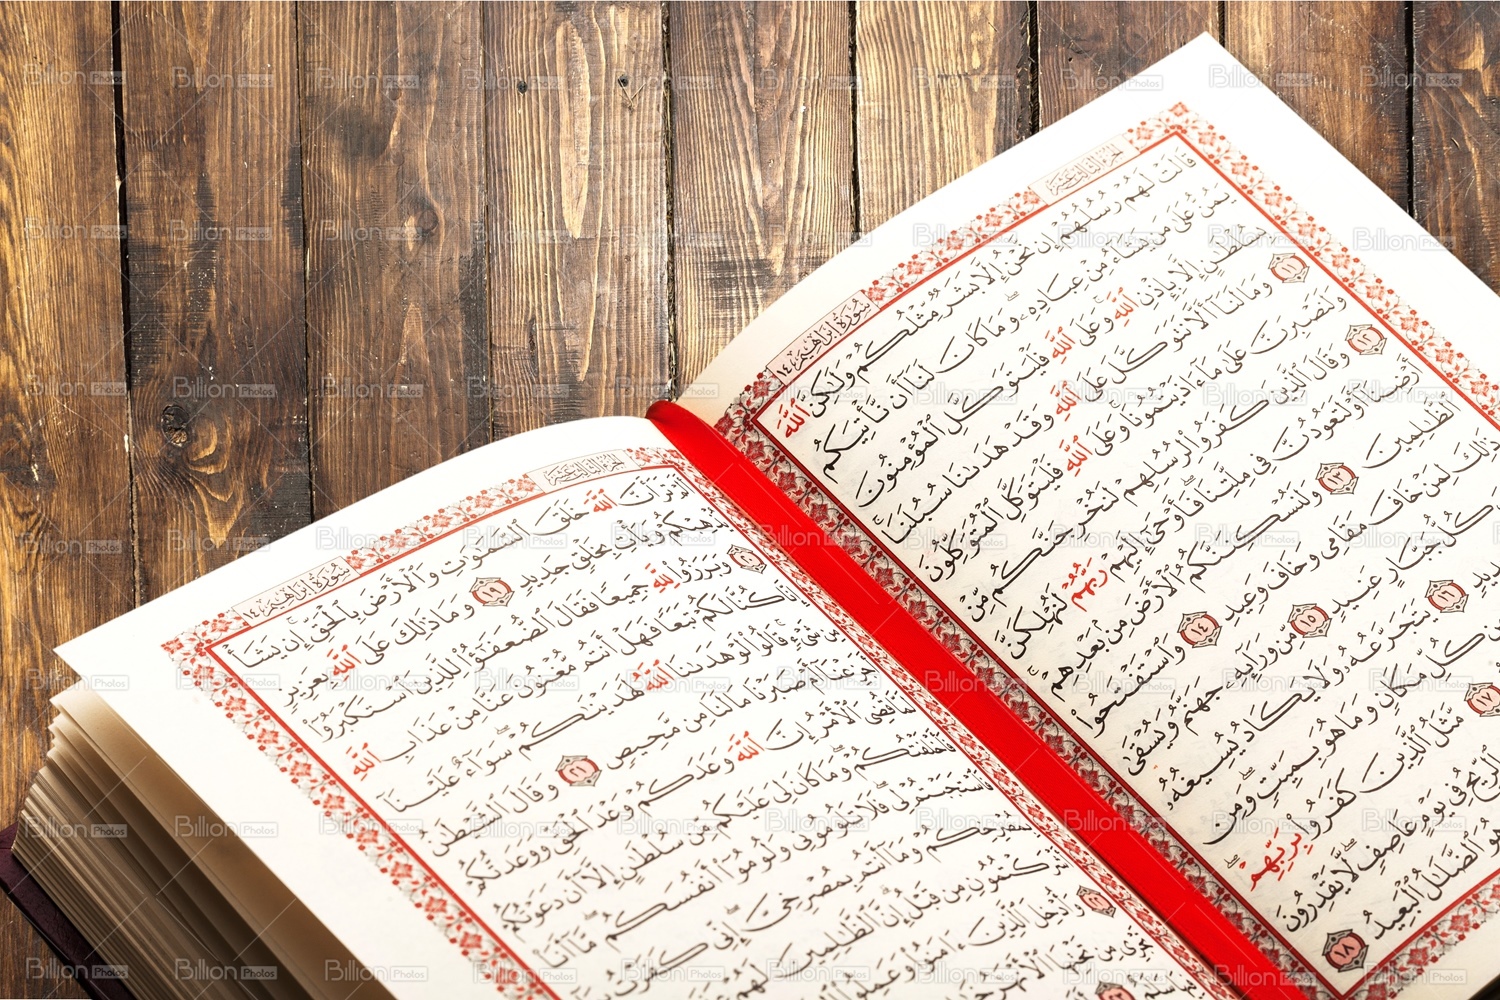 الجزء الثالث عشر
سورة إبراهيم ١٤
قَالَتْ لَهُمْ رُسُلُهُمْ إِن نَّحْنُ إِلَّا بَشَرٌ مِّثْلُكُمْ وَلَٰكِنَّ اللَّهَ
يَمُنُّ عَلَىٰ مَن يَشَاءُ مِنْ عِبَادِهِ وَمَا كَانَ لَنَا أَن نَّأْتِيَكُم
بِسُلْطَٰنٍ إِلَّا بِإِذْنِ اللَّهِ وَعَلَى اللَّهِ فَلْيَتَوَكَّلِ الْمُؤْمِنُونَ
١١ وَمَا لَنَا أَلَّا نَتَوَكَّلَ عَلَى اللَّهِ وَقَدْ هَدَىٰنَا سُبُلَنَا
وَلَنَصْبِرَنَّ عَلَىٰ مَا ءَاذَيْتُمُونَا وَعَلَى اللَّهِ فَلْيَتَوَكَّلِ الْمُتَوَكِّلُونَ
١٢ وَقَالَ الَّذِينَ كَفَرُوا لِرُسُلِهِمْ لَنُخْرِجَنَّكُم مِّنْ
أَرْضِنَا أَوْ لَتَعُودُنَّ فِي مِلَّتِنَا فَأَوْحَىٰ إِلَيْهِمْ رَبُّهُمْ لَنُهْلِكَنَّ
الظَّٰلِمِينَ ١٣ وَلَنُسْكِنَنَّكُمُ الْأَرْضَ مِن بَعْدِهِمْ
ذَٰلِكَ لِمَنْ خَافَ مَقَامِي وَخَافَ وَعِيدِ ١٤ وَاسْتَفْتَحُوا
كُلُّ جَبَّارٍ عَنِيدٍ ١٥ مِّن وَرَائِهِ جَهَنَّمُ وَيُسْقَىٰ
١٦ يَتَجَرَّعُهُ وَلَا يَكَادُ يُسِيغُهُ
كُلِّ مَكَانٍ وَمَا هُوَ بِمَيِّتٍ وَمِن
١٧ مَّثَلُ الَّذِينَ كَفَرُوا بِرَبِّهِمْ
الرِّيحُ فِي يَوْمٍ عَاصِفٍ لَّا يَقْدِرُونَ
هُوَ الضَّلَٰلُ الْبَعِيدُ ١٨
الجزء الثالث عشر
سورة إبراهيم ١٤
تَرَ أَنَّ اللَّهَ خَلَقَ السَّمَٰوَٰتِ وَالْأَرْضَ بِالْحَقِّ إِن يَشَأْ
يُذْهِبْكُمْ وَيَأْتِ بِخَلْقٍ جَدِيدٍ ١٩ وَمَا ذَٰلِكَ عَلَى اللَّهِ بِعَزِيزٍ
٢٠ وَبَرَزُوا لِلَّهِ جَمِيعًا فَقَالَ الضُّعَفَٰؤُا لِلَّذِينَ اسْتَكْبَرُوا
كُنَّا لَكُمْ تَبَعًا فَهَلْ أَنتُم مُّغْنُونَ عَنَّا مِنْ عَذَابِ اللَّهِ
مِن شَيْءٍ قَالُوا لَوْ هَدَىٰنَا اللَّهُ لَهَدَيْنَٰكُمْ سَوَاءٌ عَلَيْنَا
أَجَزِعْنَا أَمْ صَبَرْنَا مَا لَنَا مِن مَّحِيصٍ ٢١ وَقَالَ الشَّيْطَٰنُ
قُضِيَ الْأَمْرُ إِنَّ اللَّهَ وَعَدَكُمْ وَعْدَ الْحَقِّ وَوَعَدتُّكُمْ
فَأَخْلَفْتُكُمْ وَمَا كَانَ لِيَ عَلَيْكُم مِّن سُلْطَٰنٍ إِلَّا أَن دَعَوْتُكُمْ
فَاسْتَجَبْتُمْ لِي فَلَا تَلُومُونِي وَلُومُوا أَنفُسَكُم مَّا أَنَا
بِمُصْرِخِكُمْ وَمَا أَنتُم بِمُصْرِخِيَّ إِنِّي كَفَرْتُ
أَشْرَكْتُمُونِ مِن قَبْلُ إِنَّ الظَّٰلِمِينَ لَهُمْ
٢٢ وَأُدْخِلَ الَّذِينَ ءَامَنُوا وَعَمِلُوا
تَجْرِي مِن تَحْتِهَا الْأَنْهَٰرُ